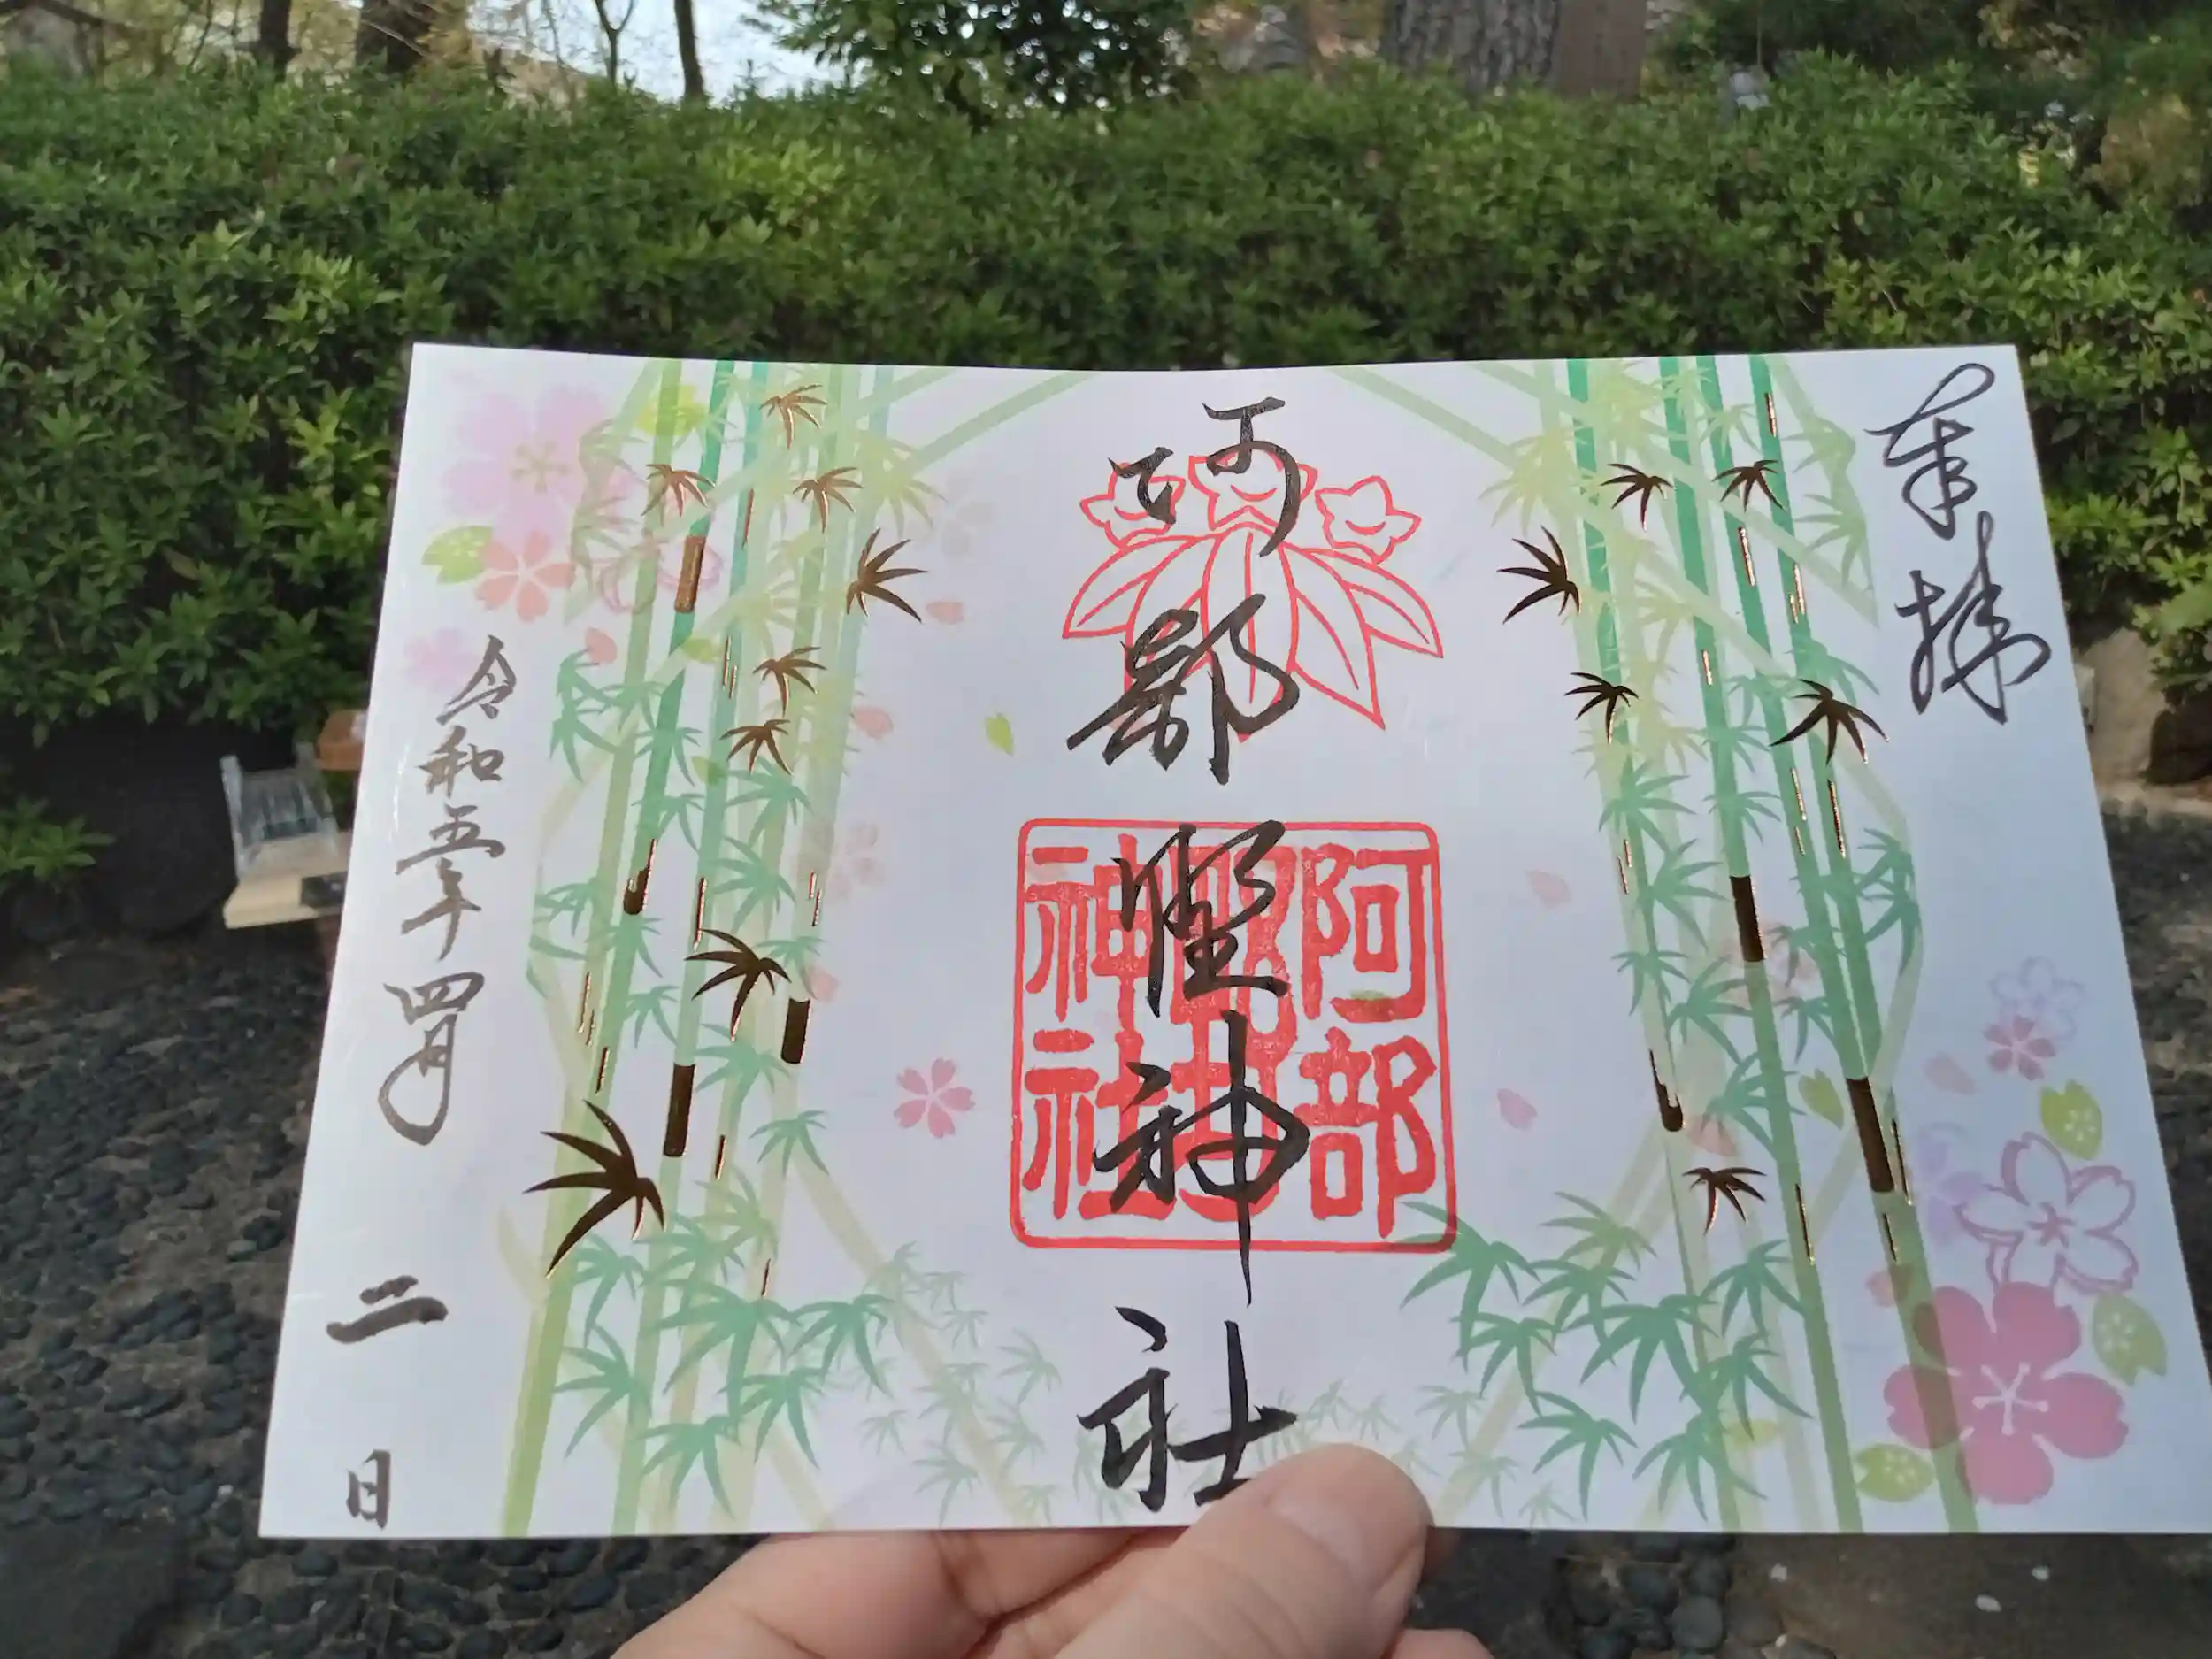 奉拝
阿部野神社
阿部
野
神社
令和五年四月二日